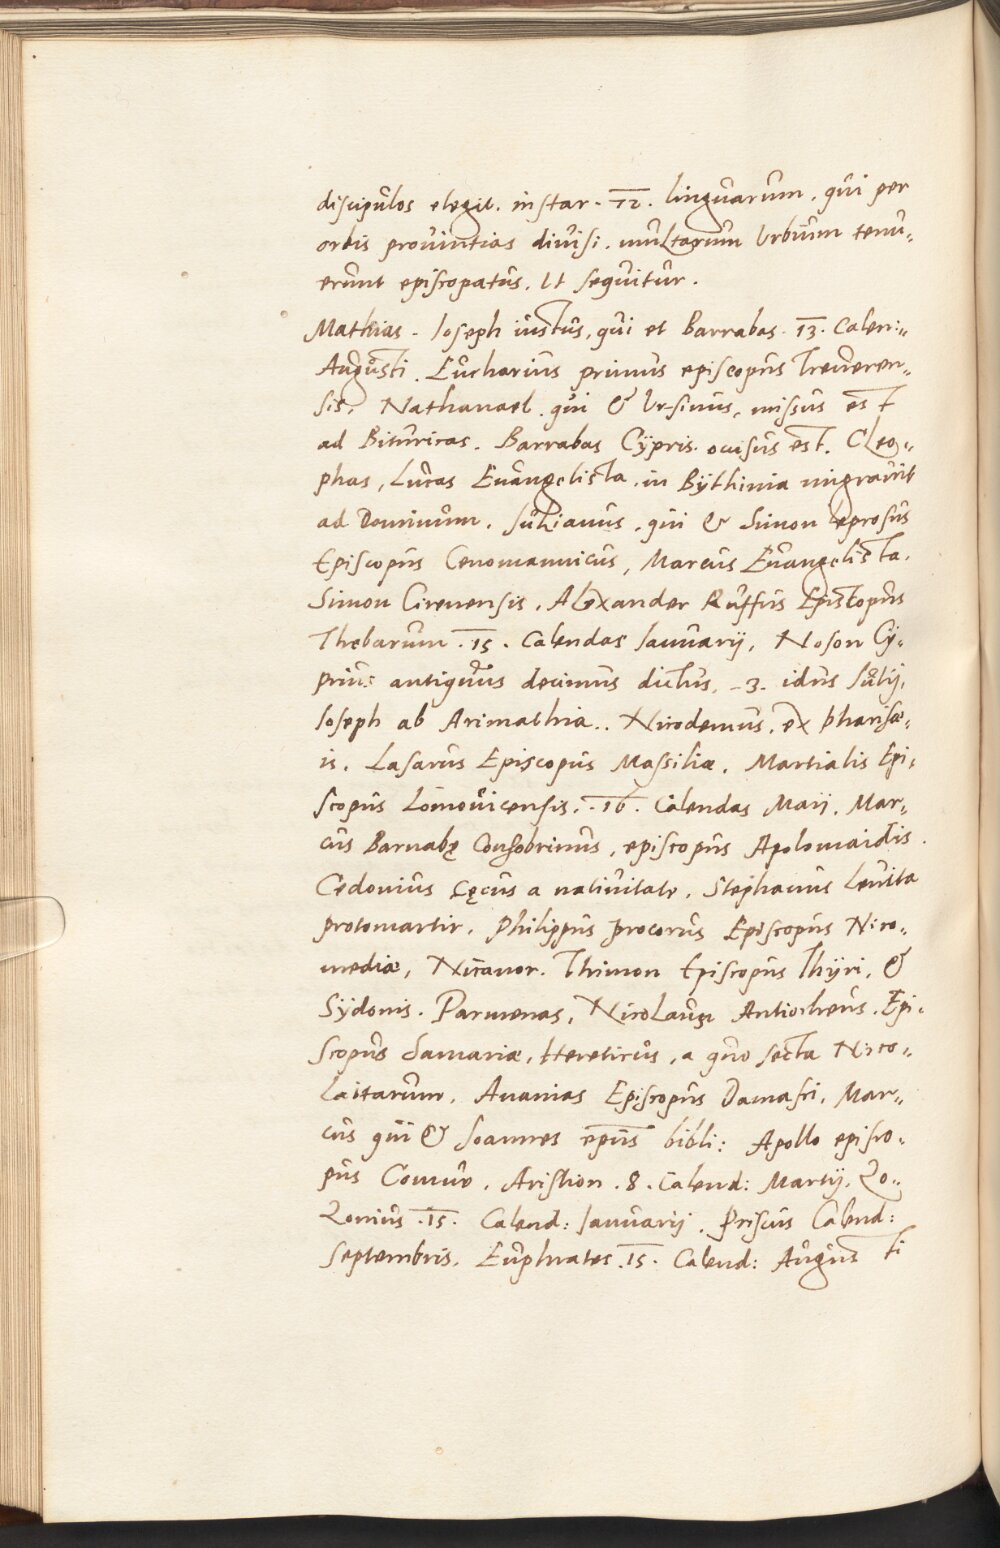 discipulos elegit. instar. 72. linguarum, qui per
orbis prouintias diuisi. multarum Vrbium tenu„
erunt episcopatus. Vt sequitur.
Mathias. Ioseph iustus, qui et Barrabas. 13. Calen:„
Augusti. Eucharius primus episcopus Treueren„
sis, Nathanael qui & Vrsinus, missus est
ad Bituricas. Barrabas Cypris occisus est. Cleo„
phas, Lucas Euangelista in Bythinia migrauit
ad Dominum. Iulianus, qui & Simon leprosus
Episcopus Cenomannicus, Marcus Euangelista.
Simon Cirenensis, Alexander Ruffus Episcopus
Thebarum. 15. Calendas Ianuarij, Noson Cy„
prius antiquus decimus dictus, 3. idus Iulij,
Ioseph ab Arimathia.. Nicodemus, ex pharisæ„
is. Lasarus Episcopus Massiliæ. Martialis Epi„
scopus Lomouicensis. 16. Calendas Maij. Mar„
cus Barnabę Consobrinus, episcopus Apolomaidis.
Cedonius cęcus a natiuitate, Stephanus leuita
protomartir. Philippus procorus Episcopus Nico„
mediæ, Nicanor. Thimon Episcopus Thyri, &
Sydonis. Parmenas, Nicolaus Antiochens. Epi„
scopus Samariæ, Hereticus, a quo secta Nico„
laitarum, Ananias Episcopus Damasci, Mar„
cus qui & Joannes epus bibli: Apollo episco„
pus Comuo, Aristion. 8. Calend: Martij. Zo„
Zonius. 15. Calend: Ianuarij. Priscus Calend:
Septembris. Euphrates. 15. Calend: Augusti